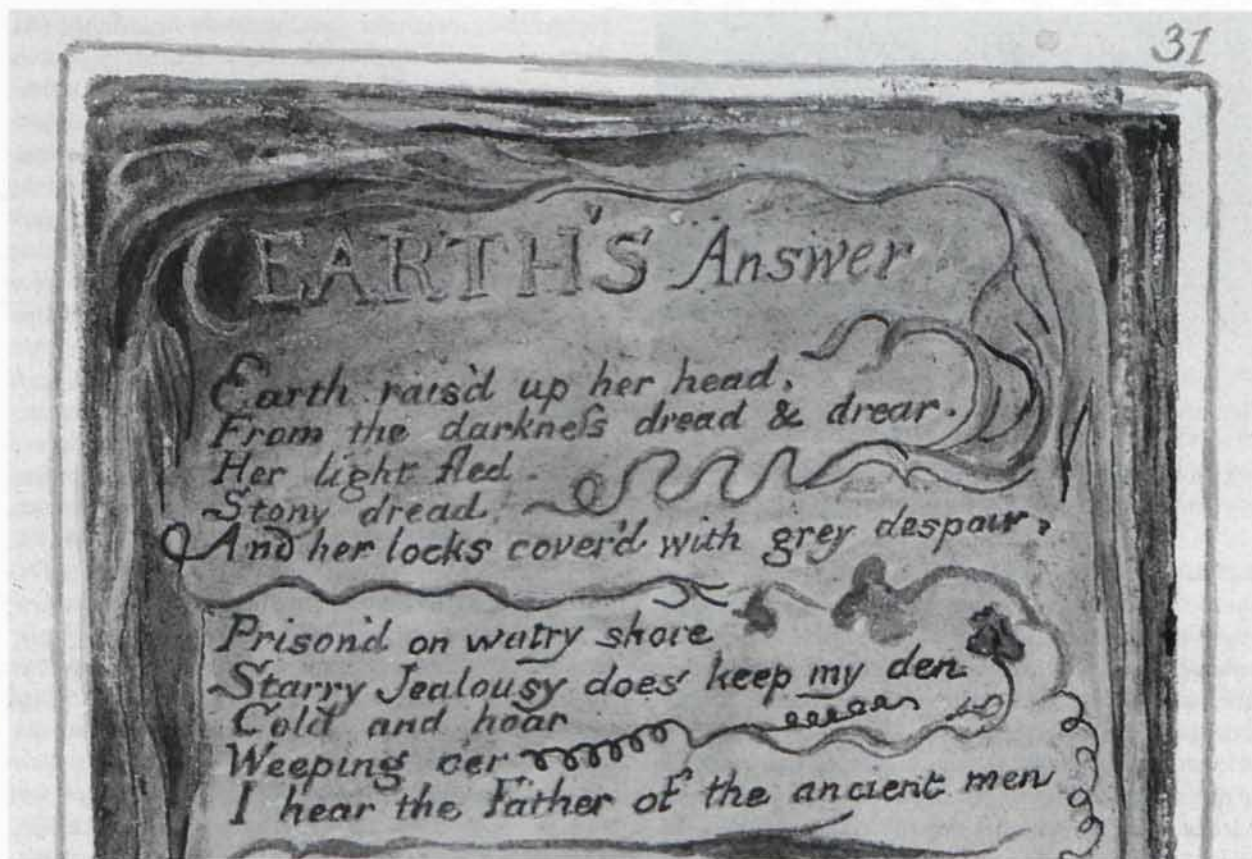 31
EARTH'S Answer
Earth rais'd up her head,
From the darkneſs dread & drear.
Her light fled.
Stony dread.
And her locks cover'd with grey despair,
Prison'd on watry shore
Starry Jealousy does keep my den
Cold and hoar
Weeping o'er
I hear the Father of the ancient men